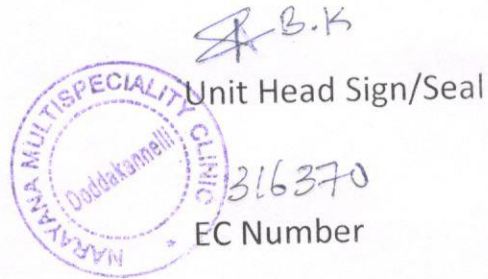 B.K
Unit Head Sign/Seal
NARAYANA MULTISPECIALITY CLINIC
Doddakannelli
316370
EC Number